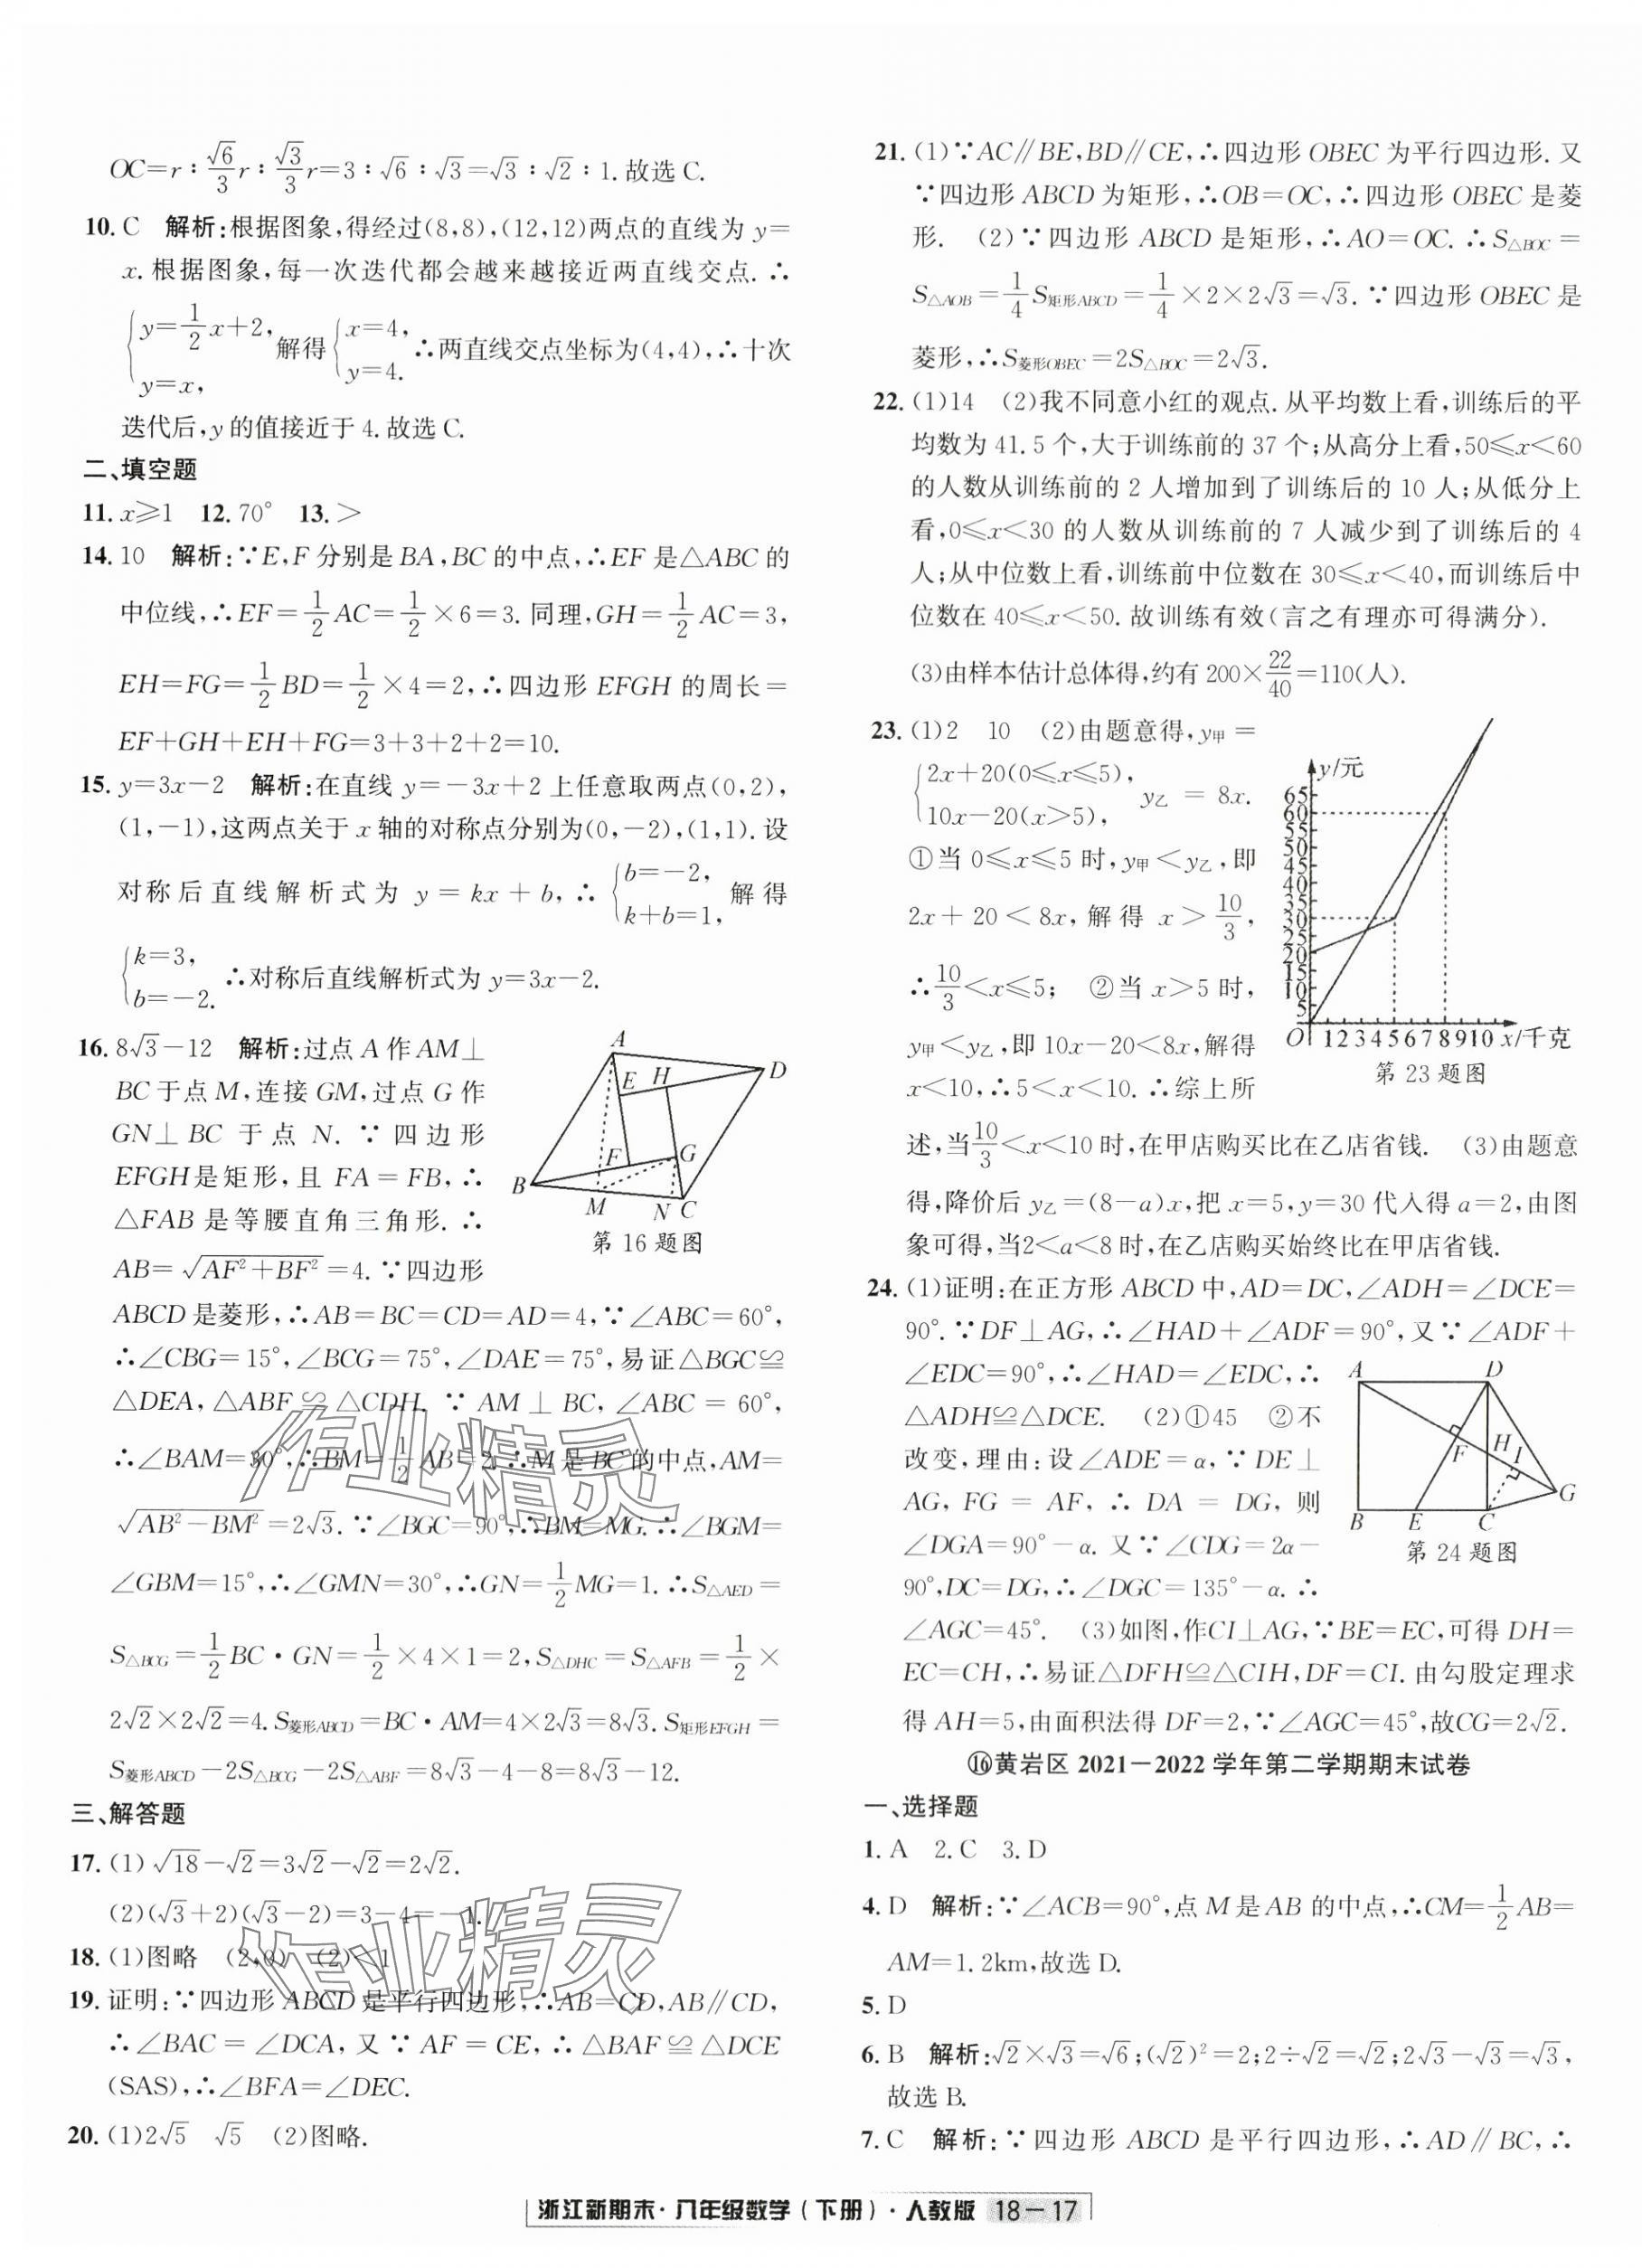 OC=r∶√6/3 r∶√3/3 r=3∶√6∶√3=√3∶√2∶1.故选C.
10. C 解析:根据图象,得经过(8,8),(12,12)两点的直线为 y=
x.根据图象,每一次迭代都会越来越接近两直线交点.∴
{y=1/2x+2, y=x, 解得{x=4, y=4. ∴两直线交点坐标为(4,4),∴十次
迭代后,y的值接近于4.故选C.
二、填空题
11. x⩾1 12. 70° 13. >
14. 10 解析:∵E,F分别是BA,BC的中点,∴EF是△ABC的
中位线,∴EF=1/2AC=1/2×6=3.同理,GH=1/2AC=3,
EH=FG=1/2BD=1/2×4=2,∴四边形EFGH的周长=
EF+GH+EH+FG=3+3+2+2=10.
15. y=3x-2 解析:在直线y=-3x+2上任意取两点(0,2),
(1,-1),这两点关于x轴的对称点分别为(0,-2),(1,1).设
对称后直线解析式为y=kx+b,∴{b=-2, k+b=1, 解得
{k=3, b=-2. ∴对称后直线解析式为y=3x-2.
16. 8√3-12 解析:过点A作AM⊥
BC于点M,连接GM,过点G作
GN⊥BC于点N.∵四边形
EFGH是矩形,且FA=FB,∴
△FAB是等腰直角三角形.∴
AB=√(AF²+BF²)=4.∵四边形
A D E H F G B M N C
第16题图
ABCD是菱形,∴AB=BC=CD=AD=4,∵∠ABC=60°,
∴∠CBG=15°,∠BCG=75°,∠DAE=75°,易证△BGC≌
△DEA,△ABF≌△CDH.∵AM⊥BC,∠ABC=60°,
∴∠BAM=30°,∴BM=1/2AB=2,∴M是BC的中点,AM=
√(AB²-BM²)=2√3.∵∠BGC=90°,∴BM=MG.∴∠BGM=
∠GBM=15°,∴∠GMN=30°,∴GN=1/2MG=1.∴S△AED=
S△BCG=1/2BC·GN=1/2×4×1=2,S△DHC=S△AFB=1/2×
2√2×2√2=4.S菱形ABCD=BC·AM=4×2√3=8√3.S矩形EFGH=
S菱形ABCD-2S△BCG-2S△ABF=8√3-4-8=8√3-12.
三、解答题
17. (1)√18-√2=3√2-√2=2√2.
(2)(√3+2)(√3-2)=3-4=-1.
18. (1)图略 (2,0) (2)<1
19. 证明:∵四边形ABCD是平行四边形,∴AB=CD,AB∥CD,
∴∠BAC=∠DCA,又∵AF=CE,∴△BAF≌△DCE
(SAS),∴∠BFA=∠DEC.
20. (1)2√5 √5 (2)图略.
21. (1)∵AC∥BE,BD∥CE,∴四边形OBEC为平行四边形.又
∵四边形ABCD为矩形,∴OB=OC,∴四边形OBEC是菱
形. (2)∵四边形ABCD是矩形,∴AO=OC.∴S△BOC=
S△AOB=1/4S矩形ABCD=1/4×2×2√3=√3.∵四边形OBEC是
菱形,∴S菱形OBEC=2S△BOC=2√3.
22. (1)14 (2)我不同意小红的观点.从平均数上看,训练后的平
均数为41.5个,大于训练前的37个;从高分上看,50⩽x<60
的人数从训练前的2人增加到了训练后的10人;从低分上
看,0⩽x<30的人数从训练前的7人减少到了训练后的4
人;从中位数上看,训练前中位数在30⩽x<40,而训练后中
位数在40⩽x<50.故训练有效(言之有理亦可得满分).
(3)由样本估计总体得,约有200×22/40=110(人).
23. (1)2 10 (2)由题意得,y甲=
{2x+20(0⩽x⩽5), 10x-20(x>5), y乙=8x.
①当0⩽x⩽5时,y甲<y乙,即
2x+20<8x,解得x>10/3,
∴10/3<x⩽5; ②当x>5时,
y甲<y乙,即10x-20<8x,解得
x<10,∴5<x<10.∴综上所
y/元
65
60
55
50
45
40
35
30
25
20
15
10
5
O 1 2 3 4 5 6 7 8 9 10 x/千克
第23题图
述,当10/3<x<10时,在甲店购买比在乙店省钱. (3)由题意
得,降价后y乙=(8-a)x,把x=5,y=30代入得a=2,由图
象可得,当2<a<8时,在乙店购买始终比在甲店省钱.
24. (1)证明:在正方形ABCD中,AD=DC,∠ADH=∠DCE=
90°.∵DF⊥AG,∴∠HAD+∠ADF=90°,又∵∠ADF+
∠EDC=90°,∴∠HAD=∠EDC,∴
△ADH≌△DCE. (2)①45 ②不
改变,理由:设∠ADE=α,∵DE⊥
AG,FG=AF,∴DA=DG,则
∠DGA=90°-α.又∵∠CDG=2α-
90°,DC=DG,∴∠DGC=135°-α.∴
A D F H I G B E C
第24题图
∠AGC=45°. (3)如图,作CI⊥AG,∵BE=EC,可得DH=
EC=CH,∴易证△DFH≌△CIH,DF=CI.由勾股定理求
得AH=5,由面积法得DF=2,∵∠AGC=45°,故CG=2√2.
⑯黄岩区2021-2022学年第二学期期末试卷
一、选择题
1. A 2. C 3. D
4. D 解析:∵∠ACB=90°,点M是AB的中点,∴CM=1/2AB=
AM=1.2km,故选D.
5. D
6. B 解析:√2×√3=√6;(√2)²=2;2÷√2=√2;2√3-√3=√3,
故选B.
7. C 解析:∵四边形ABCD是平行四边形,∴AD∥BC,∴
作业精灵
作业精灵
浙江新期末·八年级数学(下册)·人教版 18-17